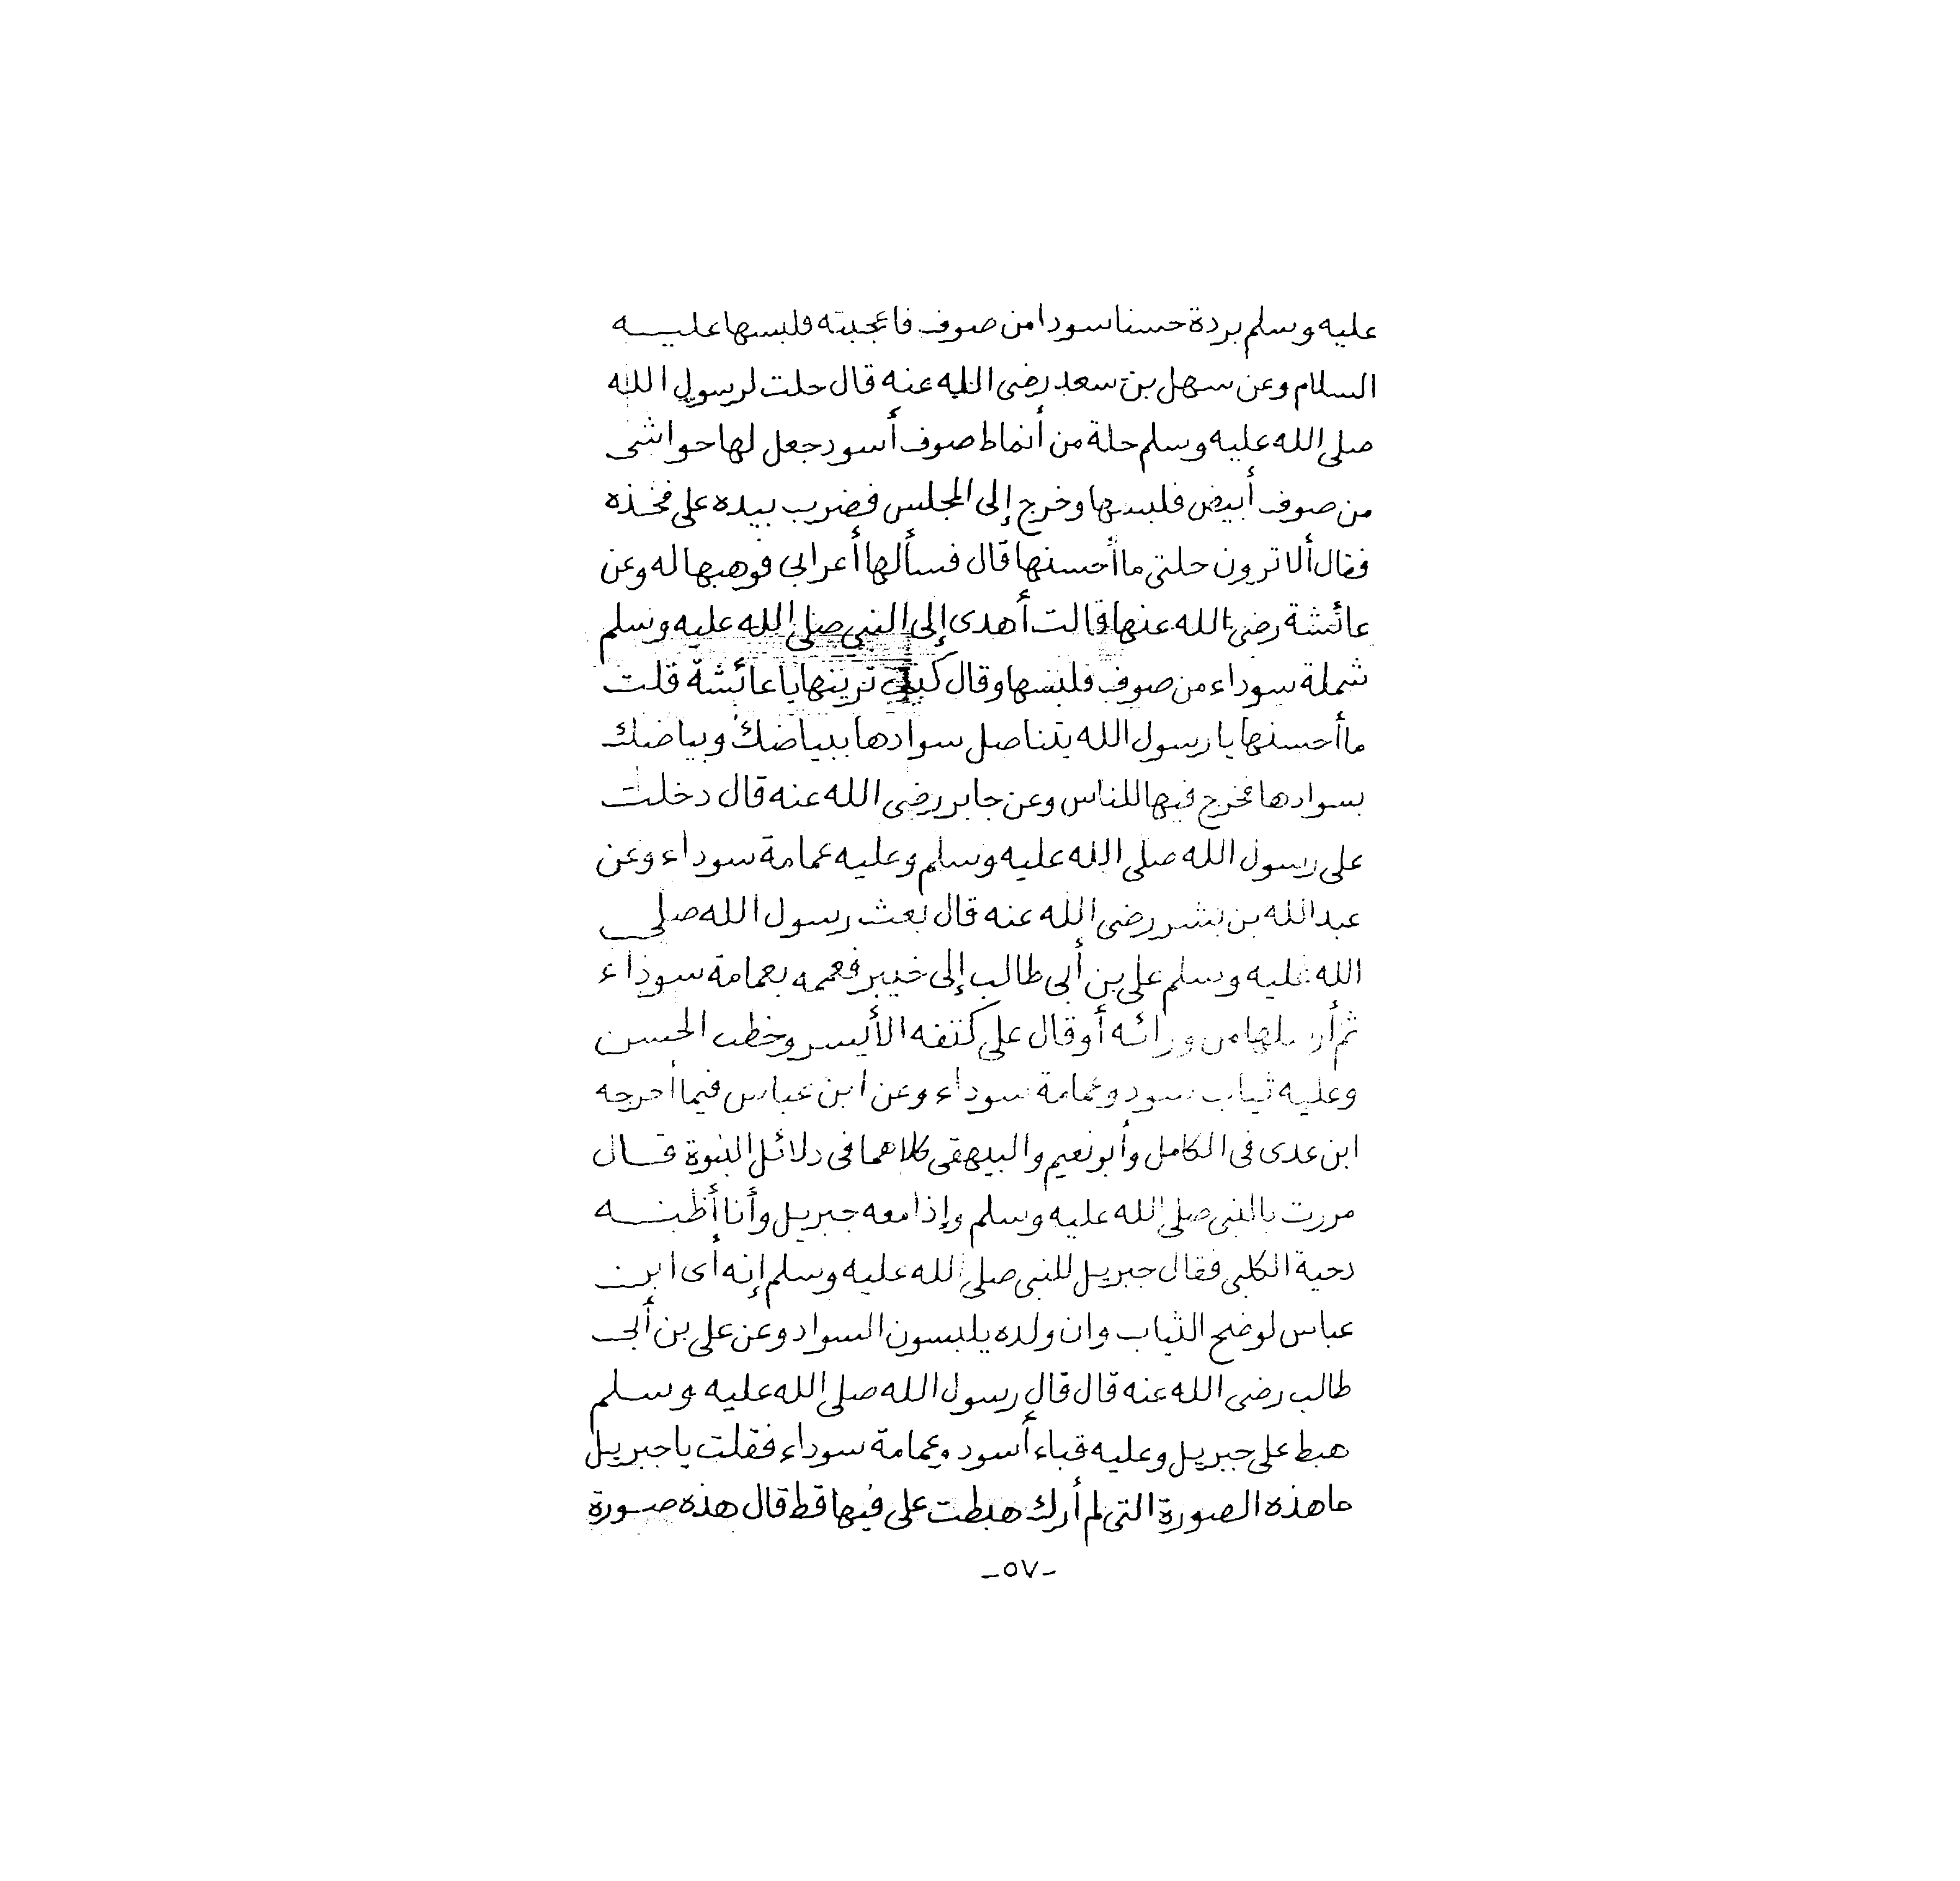 عليه وسلم بردة حسنا سودا من صوف فاعجبته فلبسها عليه
السلام وعن سهل بن سعد رضى الله عنه قال حلت لرسول الله
صلى الله عليه وسلم حلة من أنماط صوف أسود جعل لها حواشى
من صوف أبيض فلبسها وخرج إلى المجلس فضرب بيده على فخذه
فقال ألا ترون حلتى ما أحسنها قال فسألها أعرابى فوهبها له وعن
عائشة رضى الله عنها قالت أهدى إلى النبى صلى الله عليه وسلم
شملة سوداء من صوف فلبسها وقال ترينها يا عائشة قلت
ما أحسنها يا رسول الله يتناصل سوادها ببياضك وبياضك
بسوادها فخرج فيها للناس وعن جابر رضى الله عنه قال دخلت
على رسول الله صلى الله عليه وسلم وعليه عمامة سوداء وعن
عبد الله بن بشر رضى الله عنه قال بعث رسول الله صلى
الله عليه وسلم على بن أبى طالب إلى خيبر فعممه بعمامة سوداء
ثم أرسلها من ورائه أو قال على كتفه الأيسر وخطب الحسن
وعليه ثياب سود وعمامة سوداء وعن ابن عباس فيما أخرجه
ابن عدى فى الكامل وأبو نعيم والبيهقى كلاهما فى دلائل النبوة قال
مررت بالنبى صلى الله عليه وسلم وإذا معه جبريل وأنا أظنه
دحية الكلبى فقال جبريل للنبى صلى الله عليه وسلم إنه أى ابن
عباس لوضح الثياب وان ولده يلبسون السواد وعن على بن أبى
طالب رضى الله عنه قال قال رسول الله صلى الله عليه وسلم
هبط على جبريل وعليه قباء أسود وعمامة سوداء فقلت يا جبريل
ما هذه الصورة التى لم أرك هبطت على فيها قط قال هذه صورة
-٥٧-